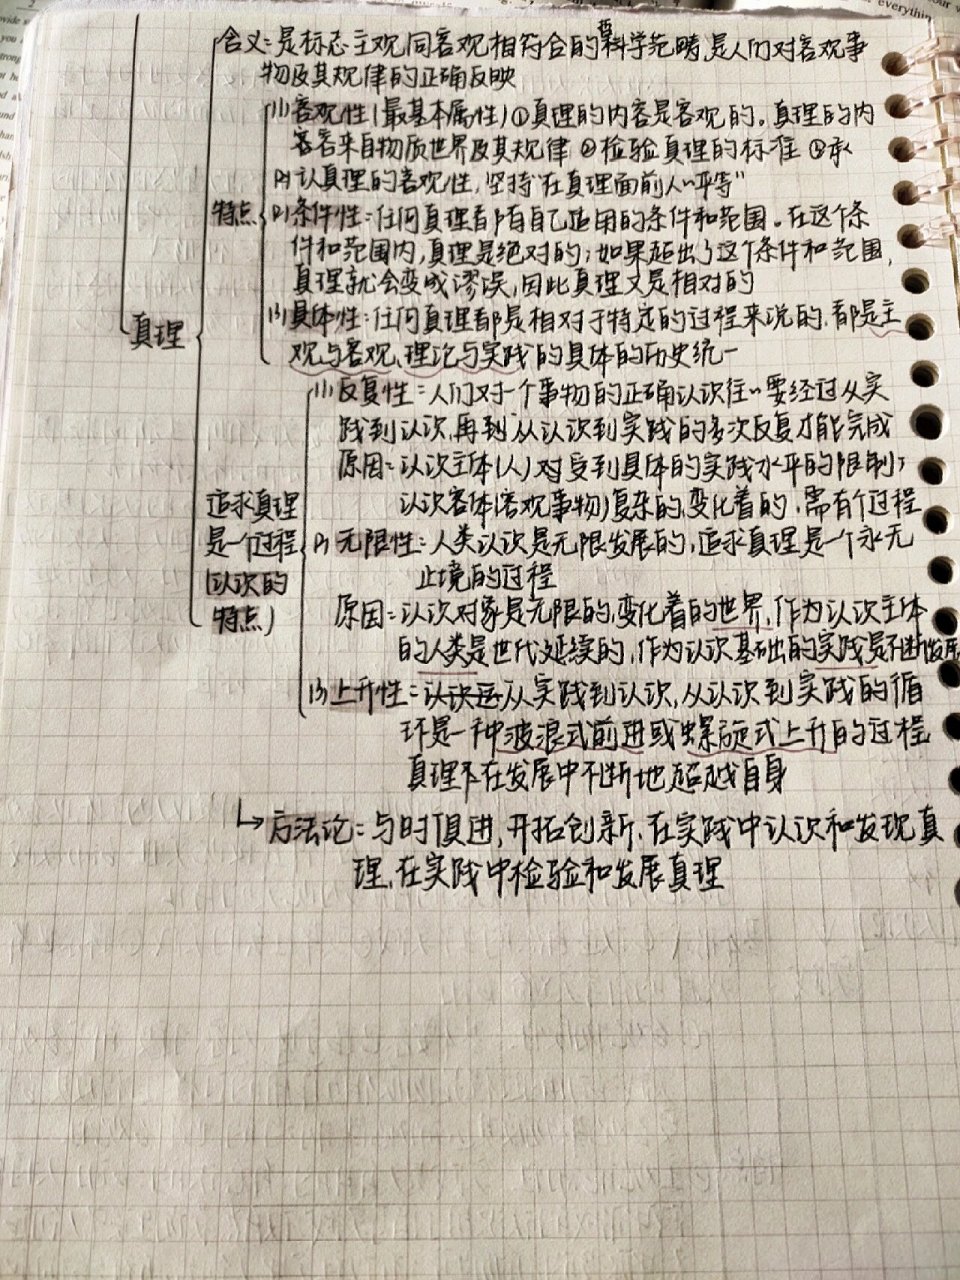 含义：是标志主观同客观相符合的哲科学范畴，是人们对客观事
物及其规律的正确反映
(1)客观性(最基本属性)①真理的内容是客观的。真理的内
容客来自物质世界及其规律 ②检验真理的标准 ③承
认真理的客观性，坚持“在真理面前人人平等”
特点
(2)条件性：任何真理都有自己适用的条件和范围。在这个条
件和范围内，真理是绝对的；如果超出了这个条件和范围，
真理就会变成谬误，因此真理又是相对的
(3)具体性：任何真理都是相对于特定的过程来说的，都是主
真理
观与客观、理论与实践的具体的历史统一
(1)反复性：人们对一个事物的正确认识往往要经过从实
践到认识，再到从认识到实践的多次反复才能完成
原因：认识主体(人)对受到具体的实践水平的限制；
认识客体(客观事物)复杂的，变化着的，需有个过程
追求真理
是一个过程
(认识的
特点)
(2)无限性：人类认识是无限发展的，追求真理是一个永无
止境的过程
原因：认识对象是无限的，变化着的世界，作为认识主体
的人类是世代延续的，作为认识基础的实践是不断发展
(3)上升性：认识运从实践到认识，从认识到实践的循
环是一种波浪式前进或螺旋式上升的过程
真理不在发展中不断地超越自身
↳方法论：与时俱进，开拓创新，在实践中认识和发现真
理，在实践中检验和发展真理